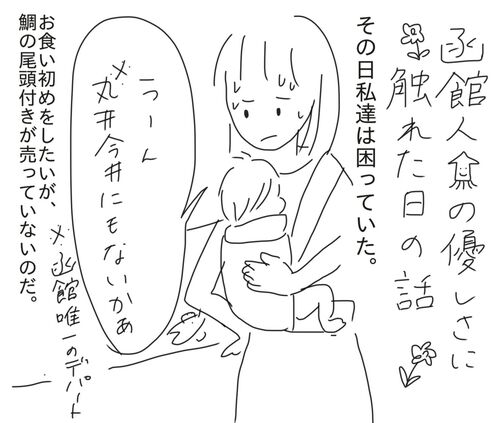 函館人の優しさに
触れた日の話
その日私達は困っていた。
うーん
※丸井今井にもないかぁ
※函館唯一のデパート
お食い初めをしたいが、
鯛の尾頭付きが売っていないのだ。